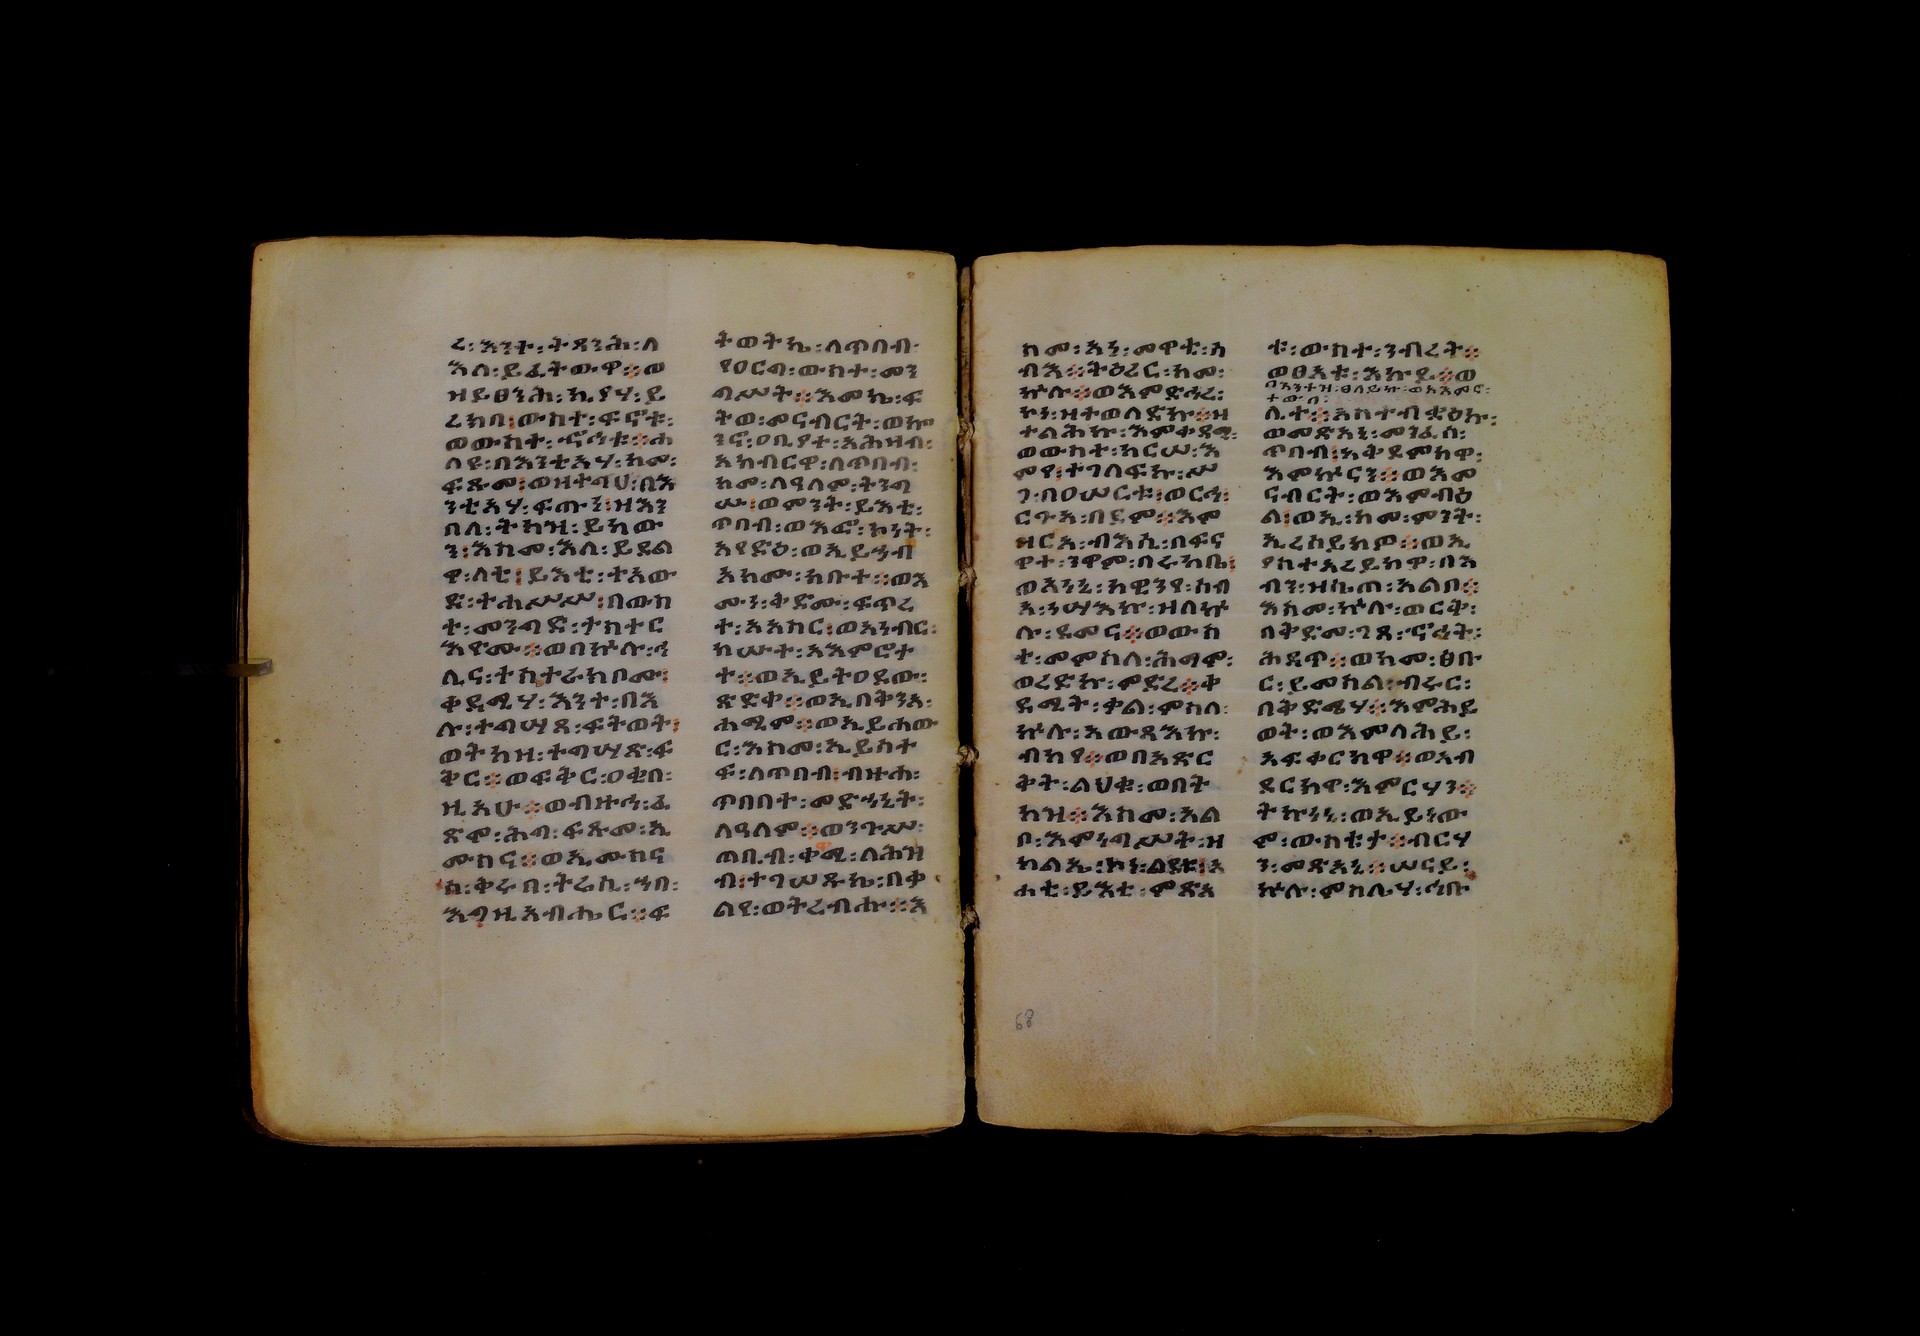 ረ፡እንተ፡ትጸንሕ፡ለ
እለ፡ይፈትውዋ፡፡ወ
ዘይፀንሕ፡ኪያሃ፡ይ
ረክባ፡ውስተ፡ፍኖቱ፡
ወውስተ፡ኆኅቱ፡፡ሐ
ለይ፡በእንቲአሃ፡ከመ፡
ፍጹመ፡ወዘተግህ፡በእ
ንቲአሃ፡ፍጡነ፡ዘእን
በለ፡ትካዝ፡ይከው
ን፡እስመ፡እለ፡ይደል
ዋ፡ለቲ፡ይእቲ፡ተአው
ድ፡ተሐሥሥ፡በውስ
ተ፡መንገድ፡ታስተር
እዮሙ፡፡ወበኵሉ፡ኅ
ሊና፡ተስተራክቦሙ፡
ቀዳሚሃ፡እንተ፡በእ
ሉ፡ተግሣጽ፡ፍትወት፡
ወትካዘ፡ተግሣጽ፡ፍ
ቅር፡፡ወፍቅር፡ዐቂበ፡
ዚአሁ፡፡ወብዙኅ፡ፈ
ጽሞ፡ሕግ፡ፍጹመ፡ኢ
ሙስና፡፡ወኢሙስና
ሰ፡ቅሩበ፡ትሬሲ፡ኀበ፡
እግዚአብሔር፡፡ፍ
ትወትኬ፡ለጥበብ፡
የዐርግ፡ውስተ፡መን
ግሥት፡፡እመኬ፡ፍ
ትወ፡መናብርት፡ወኵ
ንኖ፡ዐቢየተ፡አሕዛብ፡
አክብርዋ፡ለጥበብ፡
ከመ፡ለዓለም፡ትንግ
ሡ፡ወምንት፡ይእቲ፡
ጥበብ፡ወእፎ፡ኮነት፡
አየድዕ፡ወኢይኀብ
እክሙ፡ኅቡተ፡፡ወእ
ሙን፡ቅድሙ፡ፍጥረ
ተ፡አአስር፡ወእነብር፡
ክሡተ፡አእምሮታ
ተ፡፡ወኢይትዐደው፡
ጽድቀ፡፡ወኢበቅንአ፡
ሐሚም፡፡ወኢይሐው
ር፡እስመ፡ኢይሱተ
ፍ፡ለጥበብ፡ብዙሐ፡
ጥበበተ፡መድኀኒት፡
ለዓለም፡፡ወንጉሥ፡
ጠቢብ፡ቀዋሚ፡ለሕዝ
ብ፡ተገሠጹኬ፡በቃ
ልየ፡ወትረብሑ፡፡እ
ስመ፡አነ፡መዋቲ፡ሰ
ብእ፡፡ትዕረር፡ከመ፡
ኵሉ፡፡ወእምድኅረ፡
ኮነ፡ዘተወለድኩ፡፡ዘ
ተልሕኩ፡እምቀዳሚ፡
ወውስተ፡ከርሠ፡እ
ምየ፡ተገለፍኩ፡ሥ
ጋ፡በዐሠርቱ፡ወርኅ፡
ርጉእ፡በደም፡፡እም
ዘርአ፡ብእሲ፡በፍና
ዋተ፡ንዋም፡በሩካቤ፡
ወእንኒ፡ከዊንየ፡ሰብ
አ፡ነሣእኩ፡ዘለኵ
ሉ፡ደመና፡፡ወውስ
ተ፡መምሰለ፡ሕግሞ፡
ወረድኩ፡ምድረ፡፡ቀ
ዳሚት፡ቃል፡ምስለ፡
ኵሉ፡አውጻእኩ፡
ብካየ፡፡ወበእድር
ቅት፡ልህቁ፡ወበት
ካዝ፡፡እስመ፡አል
ቦ፡እምነገሥት፡ዘ
ካልኤ፡ኮነ፡ልደቱ፡አ
ሐቲ፡ይእቲ፡ምጽአ
ቱ፡ውስተ፡ንብረት፡፡
ወፀአቱ፡እኩይ፡፡ወ
ሊተ፡፡አስተብቋዕኩ፡
ወመጽአኒ፡መንፈሰ፡
ጥበብ፡አቅደምክዋ፡
እምኵናን፡፡ወእመ
ናብርት፡ወእምብዕ
ል፡ወኢ፡ከመ፡ምንት፡
ኢረሰይክዎ፡፡ወኢ
ያስተአረይክዋ፡በእ
ብን፡ዘሴጠ፡አልቦ፡፡
እስመ፡ኵሉ፡ወርቅ፡
በቅድመ፡ገጻ፡ኆፃት፡
ሕዳጥ፡፡ወከመ፡ፅቡ
ር፡ይመስል፡ብሩር፡
በቅድሜሃ፡፡እምሕይ
ወት፡ወእምላሕይ፡
አፍቀርክዋ፡፡ወአብ
ደርክዋ፡እምርሃን፡፡
ትኩነኒ፡ወኢይነው
ም፡ውስቲታ፡፡ብርሃ
ን፡መጽአኒ፡፡ሠናይ፡
ኵሉ፡ምስሌሃ፡ኅቡ
68